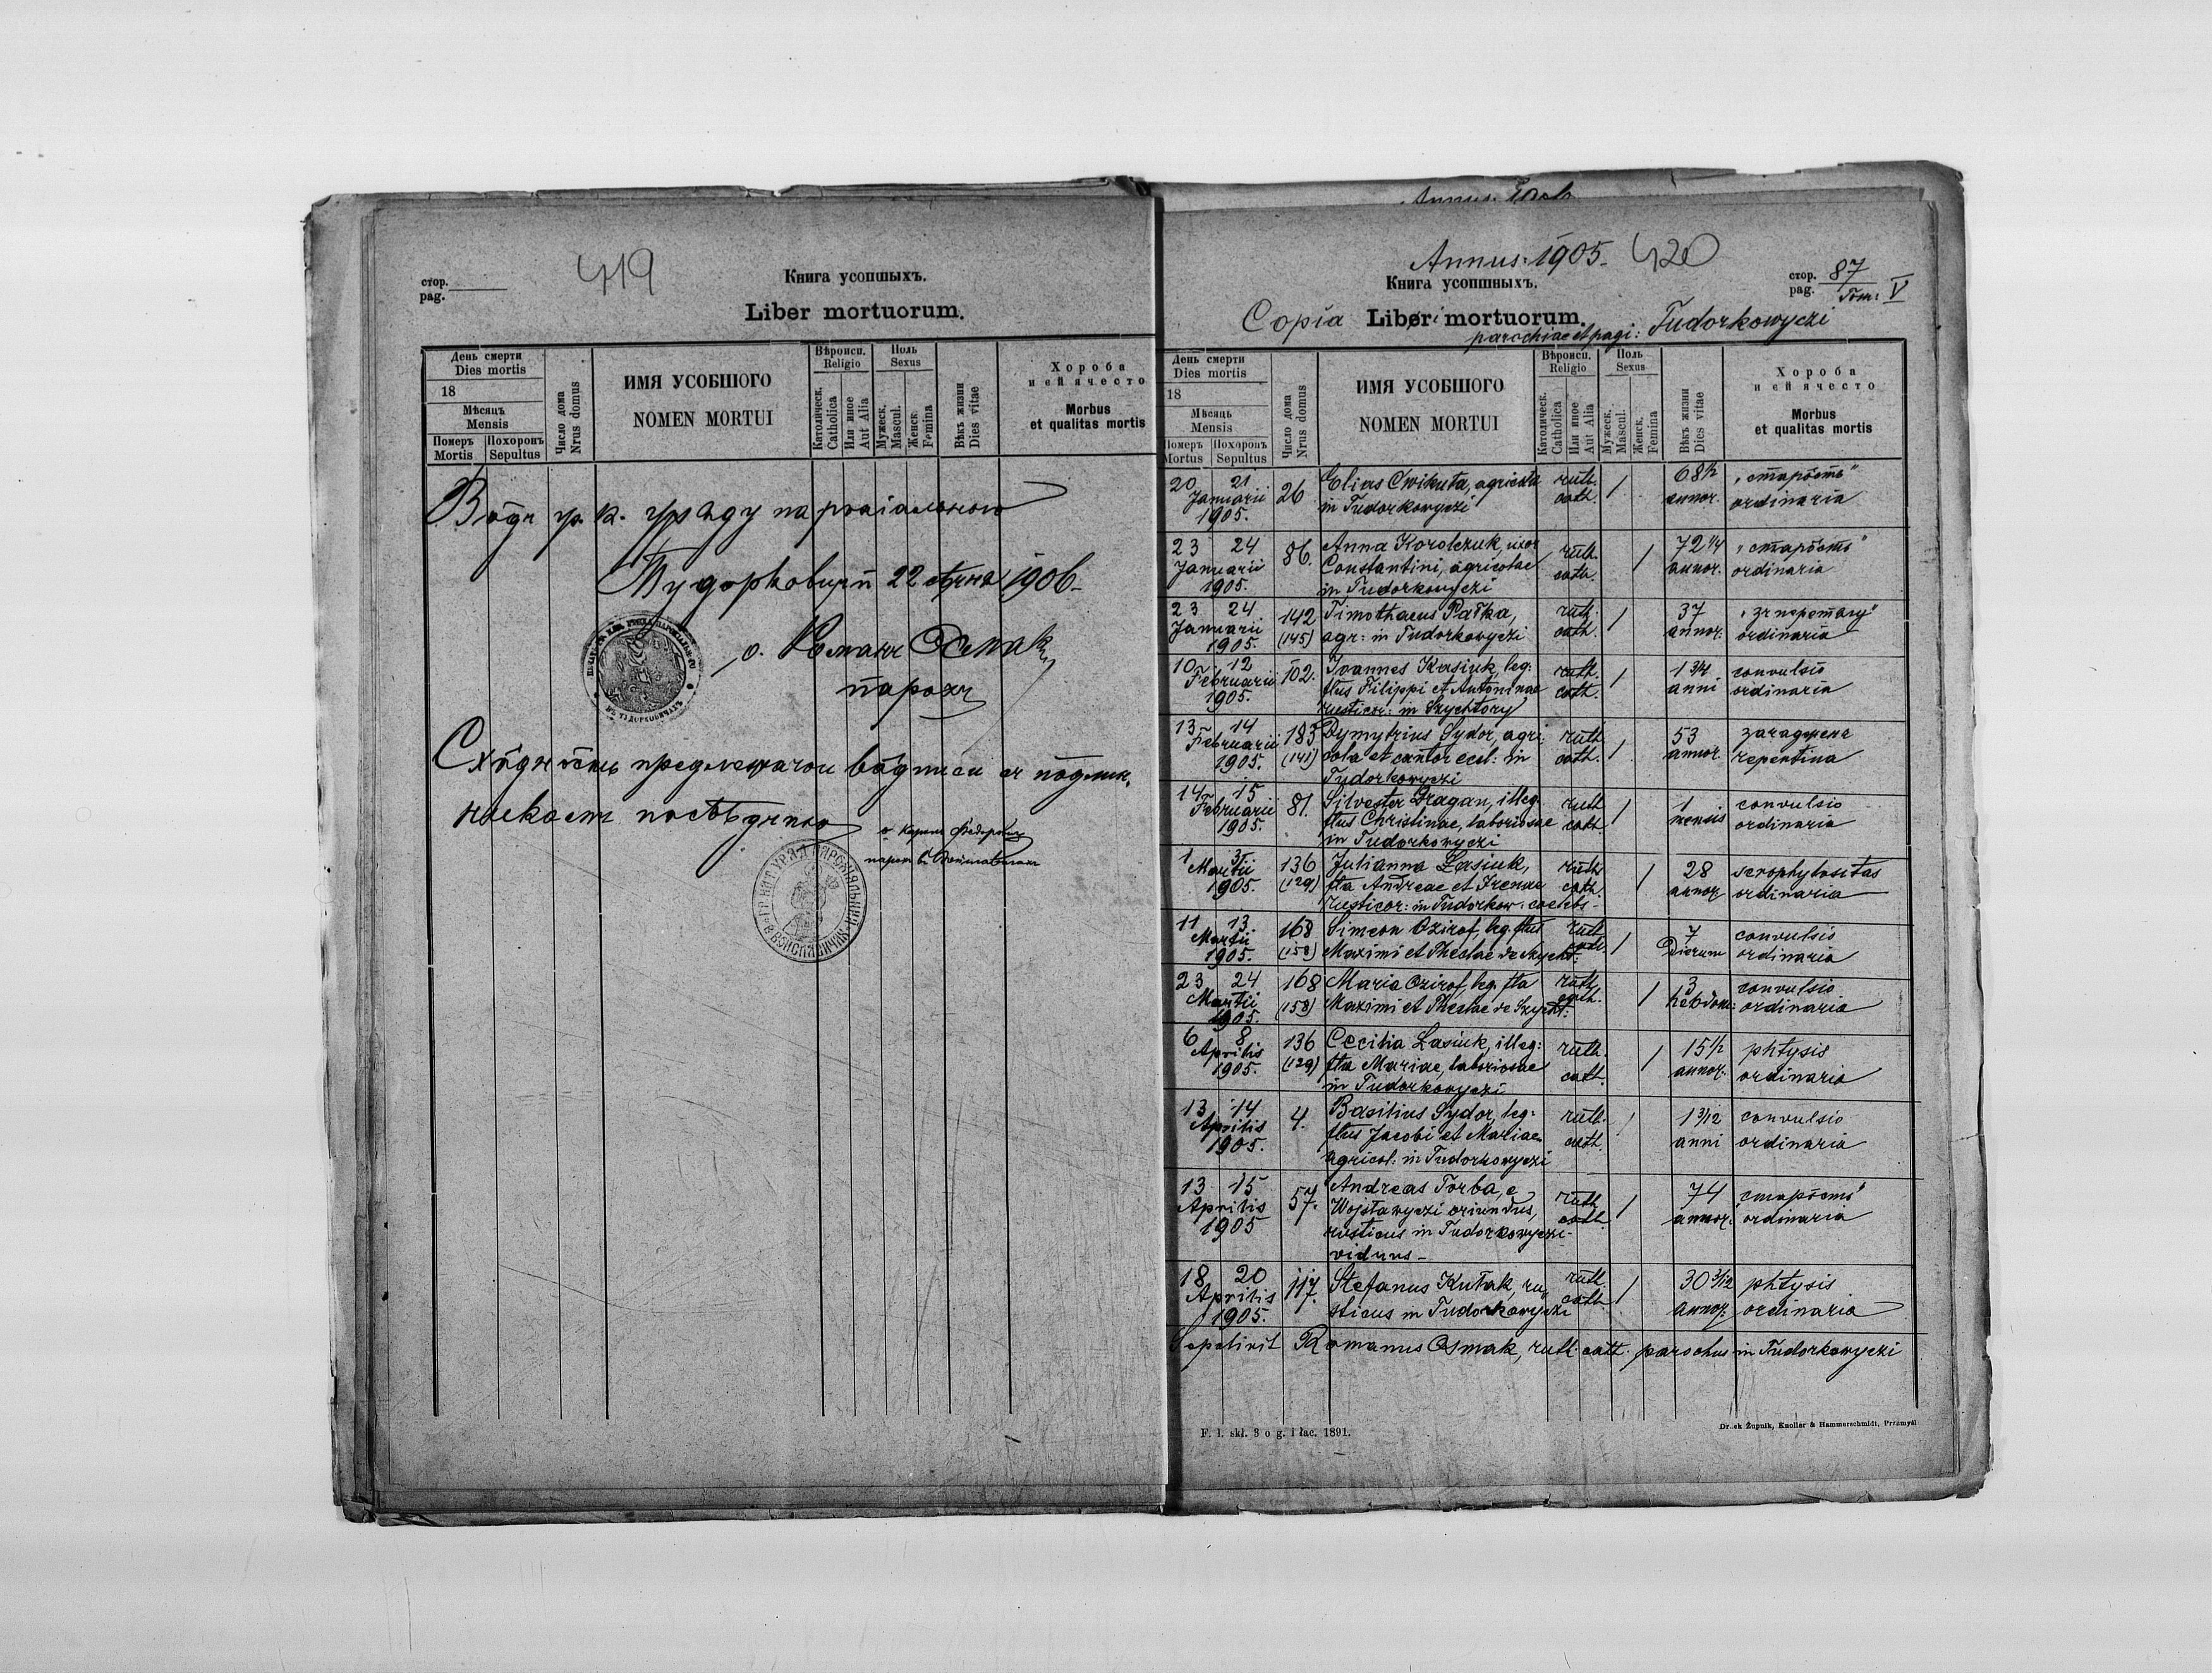 419
стор.
pag.
Книга усопшыхъ.
Liber mortuorum.
День смерти
Dies mortis
18
Мѣсяцъ
Mensis
Померъ
Mortis
Похоронъ
Sepultus
Число дома
Nrus domus
ИМЯ УСОБШОГО
NOMEN MORTUI
Вѣроисп.
Religio
Католическ.
Catholica
Или иное
Aut Alia
Поль
Sexus
Мужеск.
Mascul.
Женск.
Femina
Вѣкъ жизни
Dies vitae
Хороба
и ей ячесто
Morbus
et qualitas mortis
Вôдъ гр. к. уряду парохіального
Тудорковичи 22 1906.
о. Романъ Осмак
парохъ
Схôднôсть предлежачои вôдписи съ
Annus 190
Annus: 1905. 420
Книга усопшныхъ.
стор.
pag. 87
Tom: V
Copia Libri mortuorum.
parochiae et pagi: Tudorkowyczi
День смерти
Dies mortis
18
Мѣсяцъ
Mensis
Померъ
Mortus
Похоронъ
Sepultus
Число дома
Nrus domus
ИМЯ УСОБШОГО
NOMEN MORTUI
Вѣроисп.
Religio
Католическ.
Catholica
Или иное
Aut Alia
Поль
Sexus
Мужеск.
Mascul.
Женск.
Femina
Вѣкъ жизни
Dies vitae
Хороба
и ей ячесто
Morbus
et qualitas mortis
20 21 26 Elias Cwikuta, agricola ruth. / 68 1/2 „старôсть"
Januarii in Tudorkowyczi cath. annor. ordinaria
1905.
23 24 86. Anna Korolczuk, uxor ruth. / 72 1/4 „старôсть"
Januarii Constantini, agricolae cath. annor. ordinaria
1905. in Tudorkowyczi
23 24 142 Timothaeus Pałka, ruth. / 37
Januarii (145) agr: in Tudorkowyczi cath. annor. ordinaria
1905.
10 12 102. Ivannes Kasiuk, leg: ruth. / 1 3/4 convulsio
Februarii flius Filippi et Antoninae cath. anni ordinaria
1905. rusticor: in Szychtory
13 14 183 Dymytrius Sydor, agri- ruth. / 53
Februarii (141) cola et cantor eccl: in cath. annor repentina
1905. Tudorkowyczi
14 15 81. Silvester Dragan, illeg. ruth / 1 convulsio
Februarii flius Christinae, laboriosae cath. mensis ordinaria
1905. in Tudorkowyczi
1 3 136 Julianna Łasiuk, ruth. / 28 scrophulositas
Martii (129) flia Andreae et Irenae cath. annor. ordinaria
1905. rusticor: in Tudorkow: coelebs
11 13 168 Simeon Ozirof, leg. flius ruth. / 7 convulsio
Martii (158) Maximi et Theclae de Szycht: cath. Dierum ordinaria
1905.
23 24 168 Maria Ozirof, leg. flia ruth. / 3 convulsio
Martii (158) Maximi et Theclae de Szycht: cath. hebdom: ordinaria
1905.
6 8 136 Cecilia Łasiuk, illeg: ruth. / 15 1/2 phtysis
Aprilis (129) flia Mariae, laboriosae cath. annor. ordinaria
1905. in Tudorkowyczi
13 14 4. Basilius Sydor, leg: ruth. / 1 3/12 convulsio
Aprilis flius Jacobi et Mariae cath. anni ordinaria
1905. agricol: in Tudorkowyczi
13 15 57. Andreas Torba, e ruth. / 74 „старôсть"
Aprilis Wojsławyczi oriundus, cath. annor. ordinaria
1905 rusticus in Tudorkowyczi-
viduus-
18 20 117. Stefanus Kułak, ru- ruth. / 30 3/12 phtysis
Aprilis sticus in Tudorkowyczi cath. annor. ordinaria
1905.
Sepelivit Romanus Osmak, ruth. cath. parochus in Tudorkowyczi
F. 1. skł. 3 o g. i łac. 1891.
Druk Żupnik, Knoller & Hammerschmidt, Przemyśl